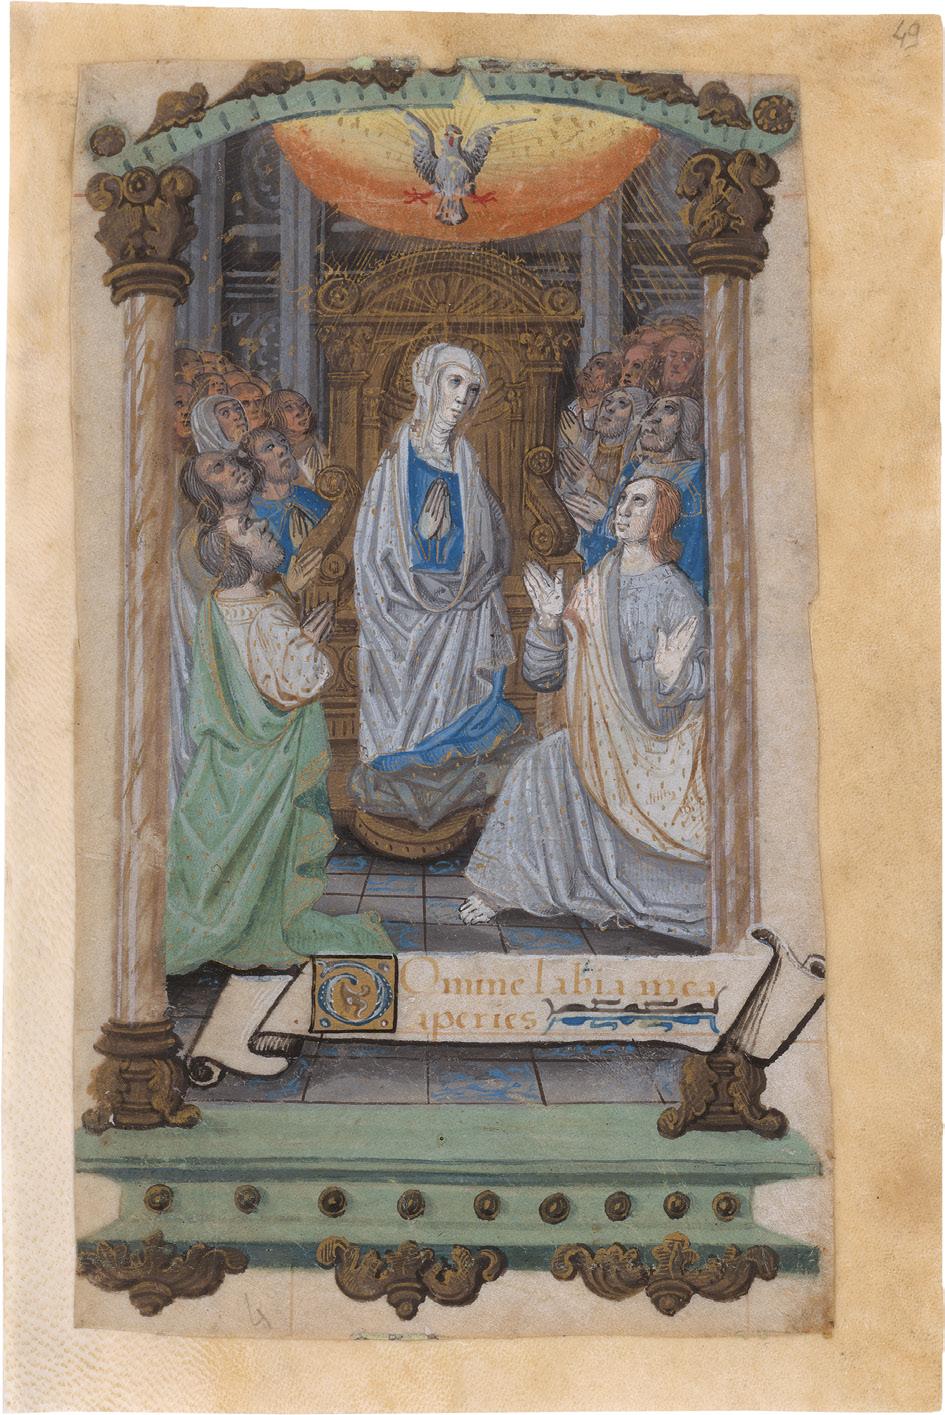 49
DOmine labia mea
aperies
4